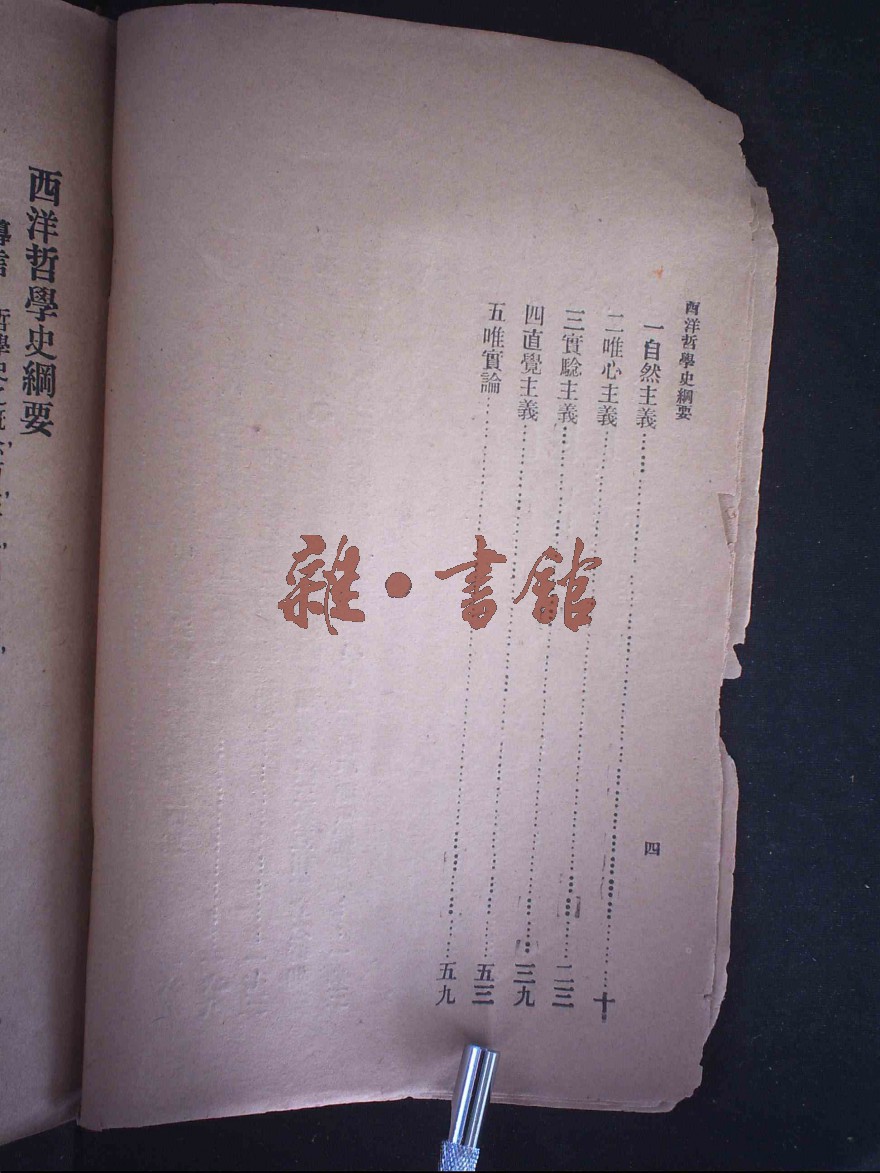 西洋哲學史綱要
四
一自然主義⋯⋯⋯⋯⋯⋯⋯⋯⋯⋯十
二唯心主義⋯⋯⋯⋯⋯⋯⋯⋯⋯⋯二三
三實驗主義⋯⋯⋯⋯⋯⋯⋯⋯⋯⋯三九
四直覺主義⋯⋯⋯⋯⋯⋯⋯⋯⋯⋯五三
五唯實論⋯⋯⋯⋯⋯⋯⋯⋯⋯⋯五九
西洋哲學史綱要
雜·書館